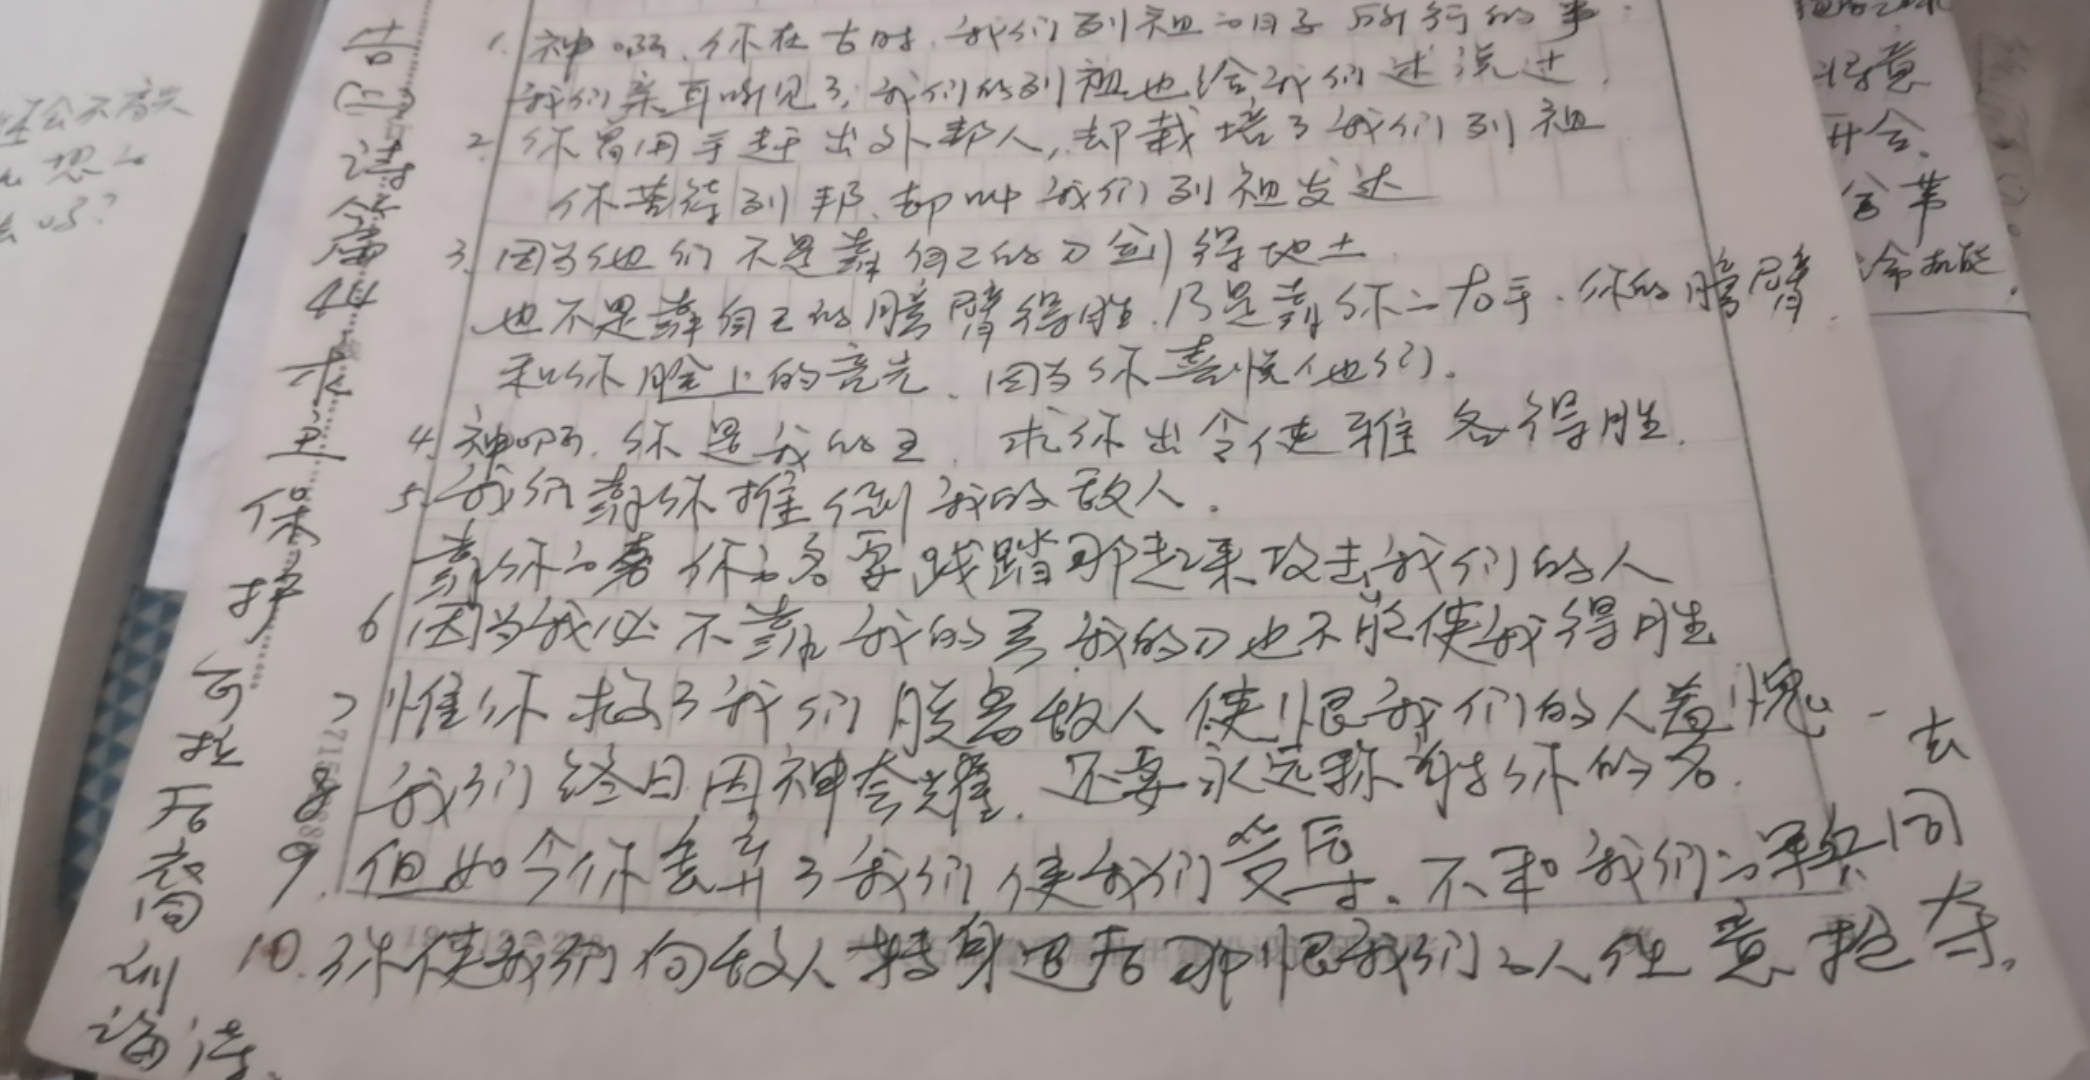 1. 神啊、你在古时、我们列祖的日子所行的事
我们亲耳听见了,我们的列祖也给我们述说过.
2. 你曾用手赶出外邦人,却栽培了我们列祖
你苦待列邦、却叫我们列祖发达
3. 因为他们不是靠自己的刀剑得地土
也不是靠自己的膀臂得胜.乃是靠你的右手.你的膀臂.
和你脸上的亮光、因为你喜悦他们.
4. 神啊.你是我的王、求你出令使雅各得胜.
5. 我们靠你推倒我的敌人.
靠你的名要践踏那起来攻击我们的人
6 因为我必不靠我的弓我的刀也不能使我得胜
7 惟你救了我们脱离敌人使恨我们的人羞愧.
8 我们终日因神夸耀.还要永远称谢你的名.
9. 但如今你丢弃了我们使我们受辱.不和我们的军兵同去
10. 你使我们向敌人转身退后那恨我们的人任意抢夺.
诗篇44
求主保护
可拉后裔训诲诗.
得意
开会.